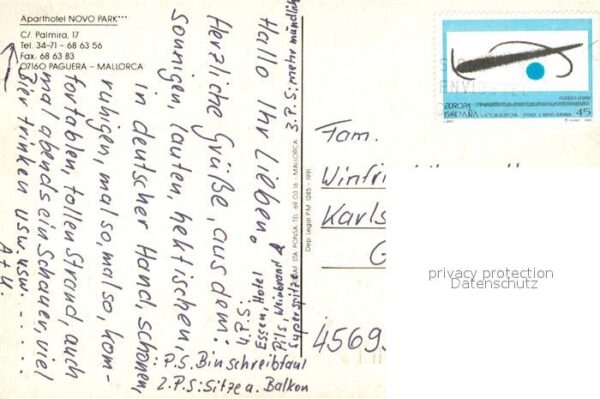 Aparthotel NOVO PARK***
C/. Palmira, 17
Tel. 34-71 - 68 63 56
Fax. 68 63 83
07160 PAGUERA - MALLORCA
Hallo Ihr Lieben.
Herzliche Grüße, aus dem:
sonnigen, lauten, hektischen,
in deutscher Hand, schönen,
ruhigen, mal so, mal so, kom-
fortablen, tollen Strand, auch
mal abends ein Schauer, viel
Bier trinken usw. usw. - . . . .
A + U.
P.S. Bin schreibfaul
2.P.S: Sitze a. Balkon
3.P.S: mehr mündlich
4.P.S:
Essen, Hotel
Pils, Weinbrand
Superspitze
STA PONSA TEL. 69 03 16 - MALLORCA
Dep. Legal P.M. 1245 - 1991
EUROPA
ESPAÑA
45
Fam.
Winfri
Karls
G
4569
privacy protection
Datenschutz